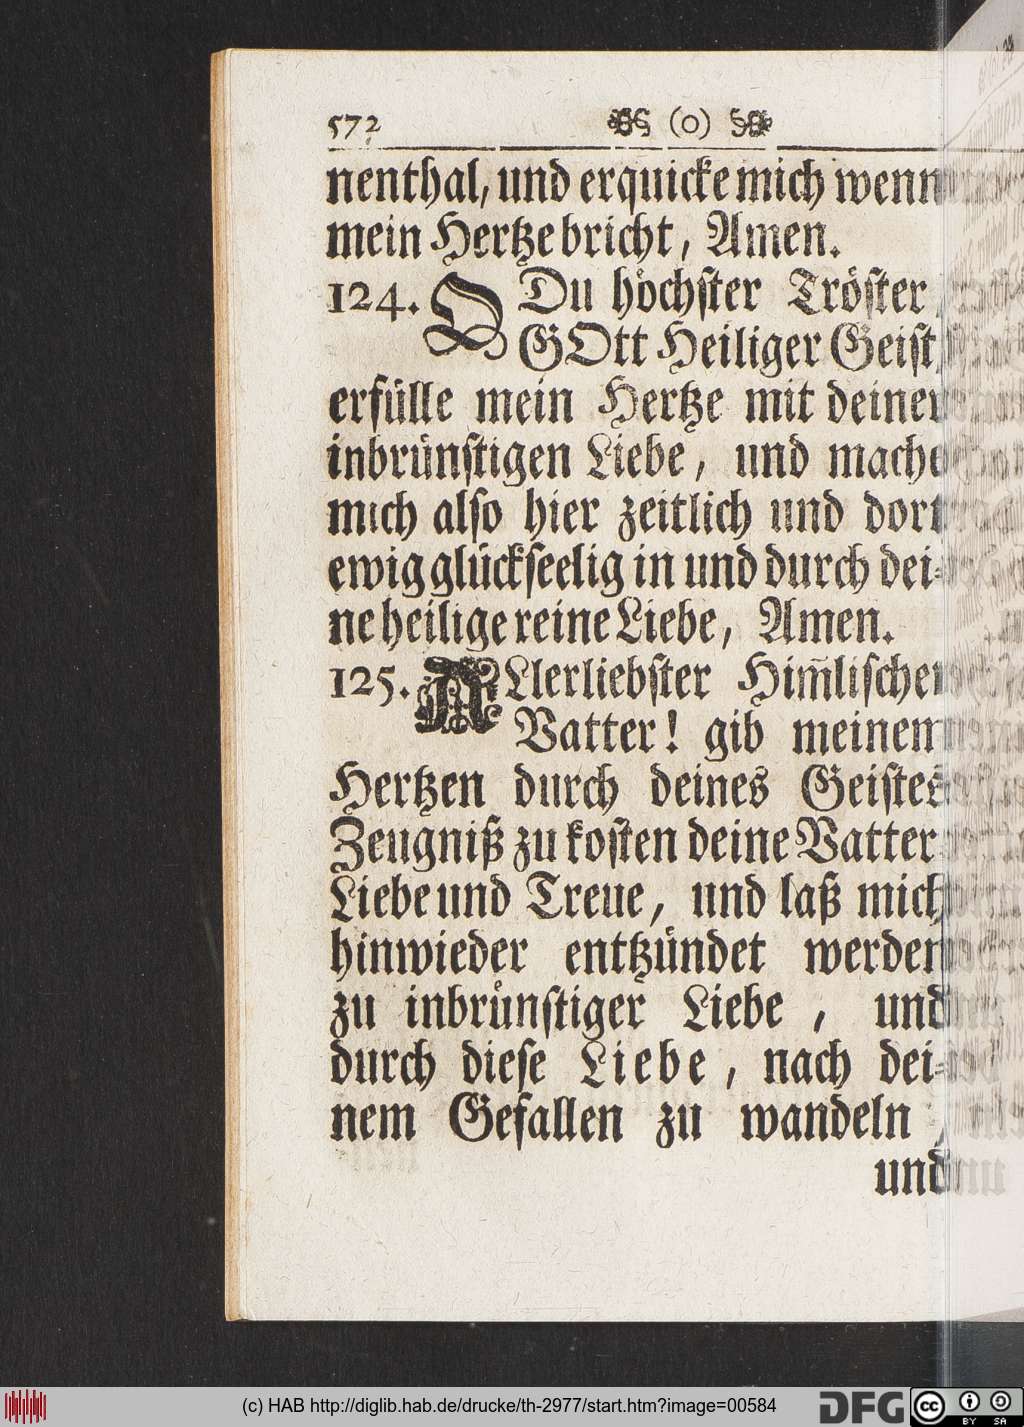 572 (o)
nenthal, und erquicke mich wenn
mein Hertze bricht, Amen.
124. O Du höchster Tröster,
GOtt Heiliger Geist,
erfülle mein Hertze mit deiner
inbrünstigen Liebe, und mache
mich also hier zeitlich und dort
ewig glückseelig in und durch dei-
ne heilige reine Liebe, Amen.
125. ALlerliebster Him̄lischer
Vatter! gib meinem
Hertzen durch deines Geistes
Zeugniß zu kosten deine Vatter-
Liebe und Treue, und laß mich
hinwieder entzündet werden
zu inbrünstiger Liebe, und
durch diese Liebe, nach dei-
nem Gefallen zu wandeln,
und
(c) HAB http://diglib.hab.de/drucke/th-2977/start.htm?image=00584
DFG
cc BY SA